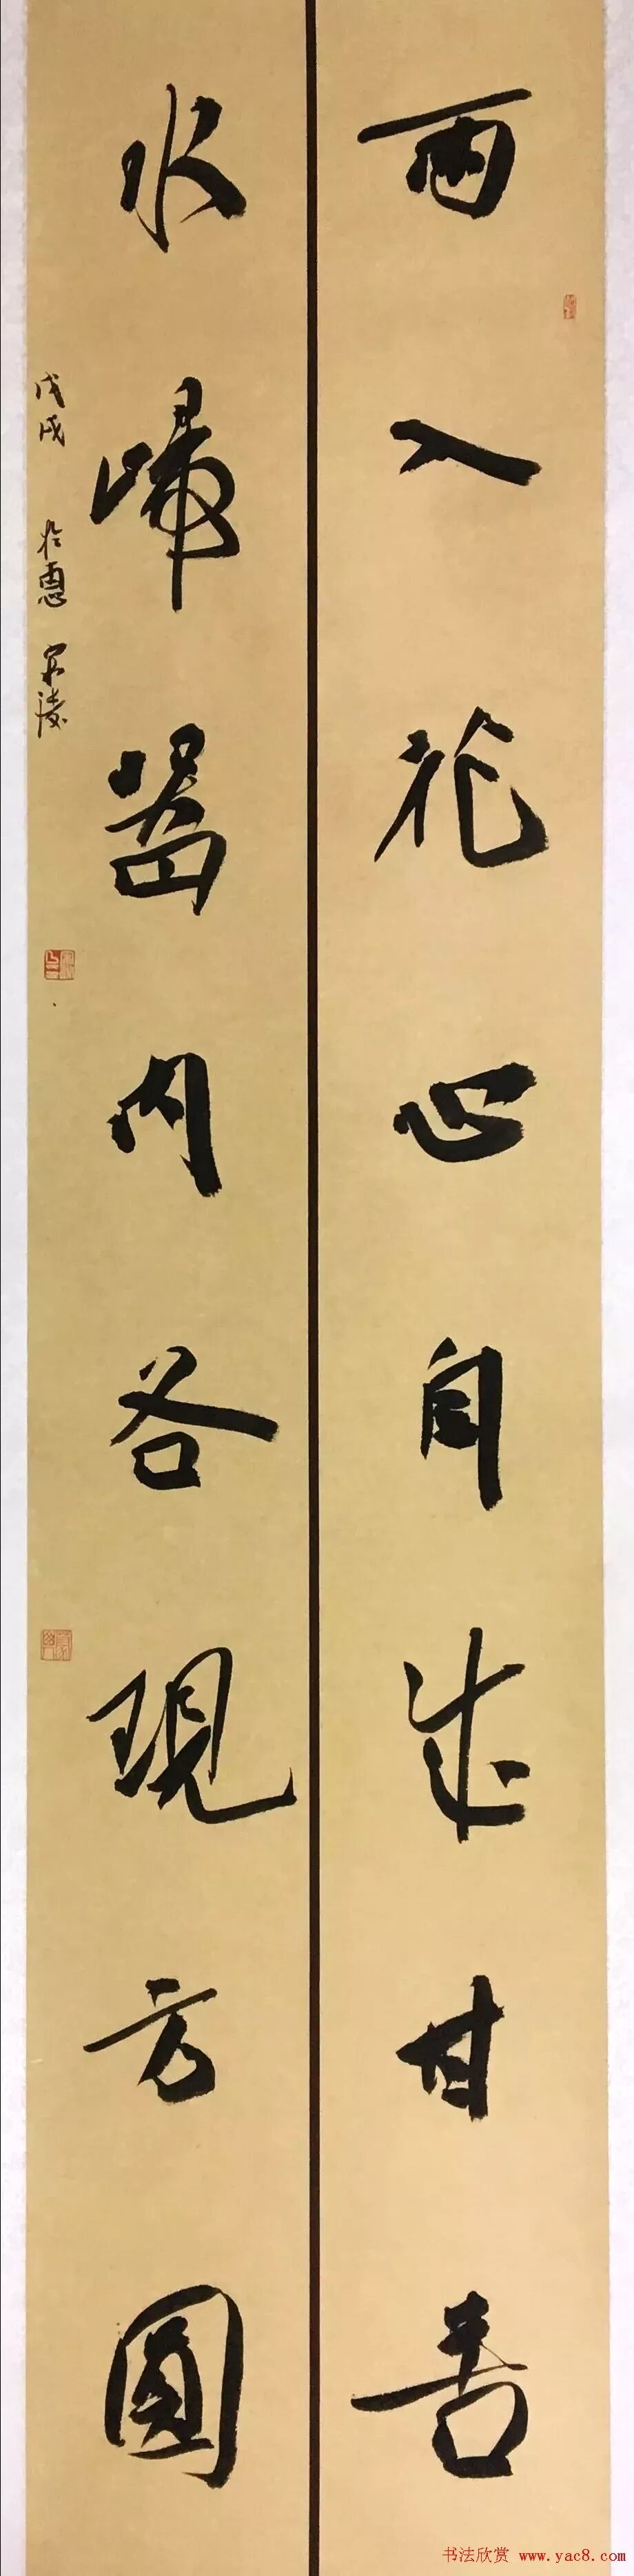 雨入花心自成甘苦
水歸器内各現方圓
戊戌 於惠 宗陵
书法欣赏 www.yac8.com